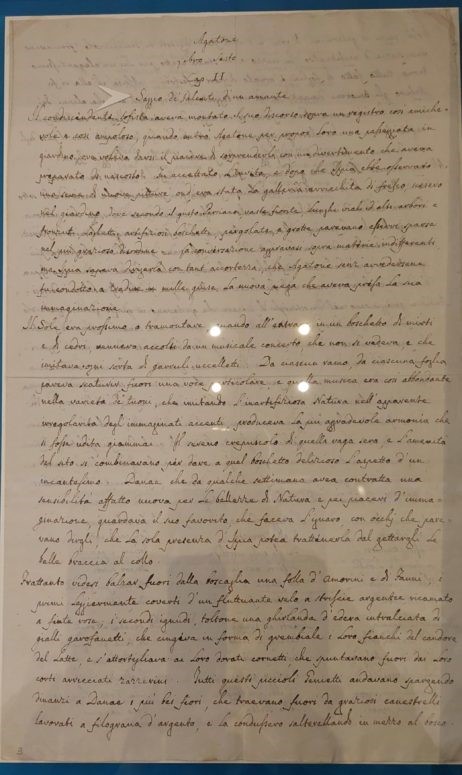 Agatone
Libro sesto
Cap. II.
Saggio di talenti di un amante
Il condiscendente sofista aveva montato il suo discorso sopra un registro così amiche-
vole e così ampoloso, quando entrò Agatone per propor loro una passeggiata in
giardino, ove voleva darsi il piacere di sorprenderla con un divertimento che aveva
preparato di nascosto. Fu accettato l'invito, e dopo che Ippia ebbe osservato
una serie di nuove pitture, ond'era stata la galleria arricchita di fresco, scesero
nel giardino, dove secondo il gusto Persiano, vaste fiorite, lunghi viali d'alti arbori e
laghetti, artifiziosi boschetti, pergolate, e grotte parevano sparse
nel più grazioso disordine. La conversazione aggiravasi sopra materie indifferenti
ma Ippia sapeva volgerla con tant'accortezza, che Agatone senz'avvedersene
fu condotto a in mille guise la nuova piega che aveva presa la sua
immaginazione.
Il Sole era prossimo a tramontare, quando all'entrar in un boschetto di mirti
e di cedri, vennero accolti da un musicale concerto, che non si vedeva, e che
imitava ogni sorta di garruli uccelletti. Da ciascun ramo, da ciascuna foglia
pareva scaturir fuori una voce particolare, e quella musica era così abbondante
nella varietà de' tuoni, che imitando l'inartifiziosa Natura nell'apparente
irregolarità degl'immaginati accenti, produceva la più aggradevole armonia che
si fosse udita giammai. Il sereno crepuscolo di quella vaga sera, e l'amenità
del sito si combinavano per dare a quel boschetto delizioso l'aspetto d'un
incantesimo. Danae che da qualche settimana avea contratta una
sensibilità affatto nuova per le bellezze di Natura e pei piaceri d'imma-
ginazione, guardava il suo favorito, che faceva l'ignaro, con occhi che pare-
vano dirgli, che la sola presenza d'Ippia potea trattenerla dal gettargli le
belle braccia al collo.
Frattanto videsi balzar fuori dalla boscaglia una folla d'Amorini e di Fauni, i
primi leggiermente coverti d'un fluttuante velo a striscie argentee ricamato
a finte rose, i secondi ignudi, toltone una ghirlanda d'edera intralciata di
gialli garofanetti, che cingeva in forma di grembiale i loro fianchi del candore
del latte, e s'attortigliava ai loro dorati cornetti, che spuntavano fuori dai loro
corti arricciati zazzerini. Tutti questi piccioli Genietti andavano spargendo
dinanzi a Danae i più bei fiori, che traevano fuori da graziosi canestrelli
lavorati a filograna d'argento, e la condussero salterellando in mezzo al bosco.